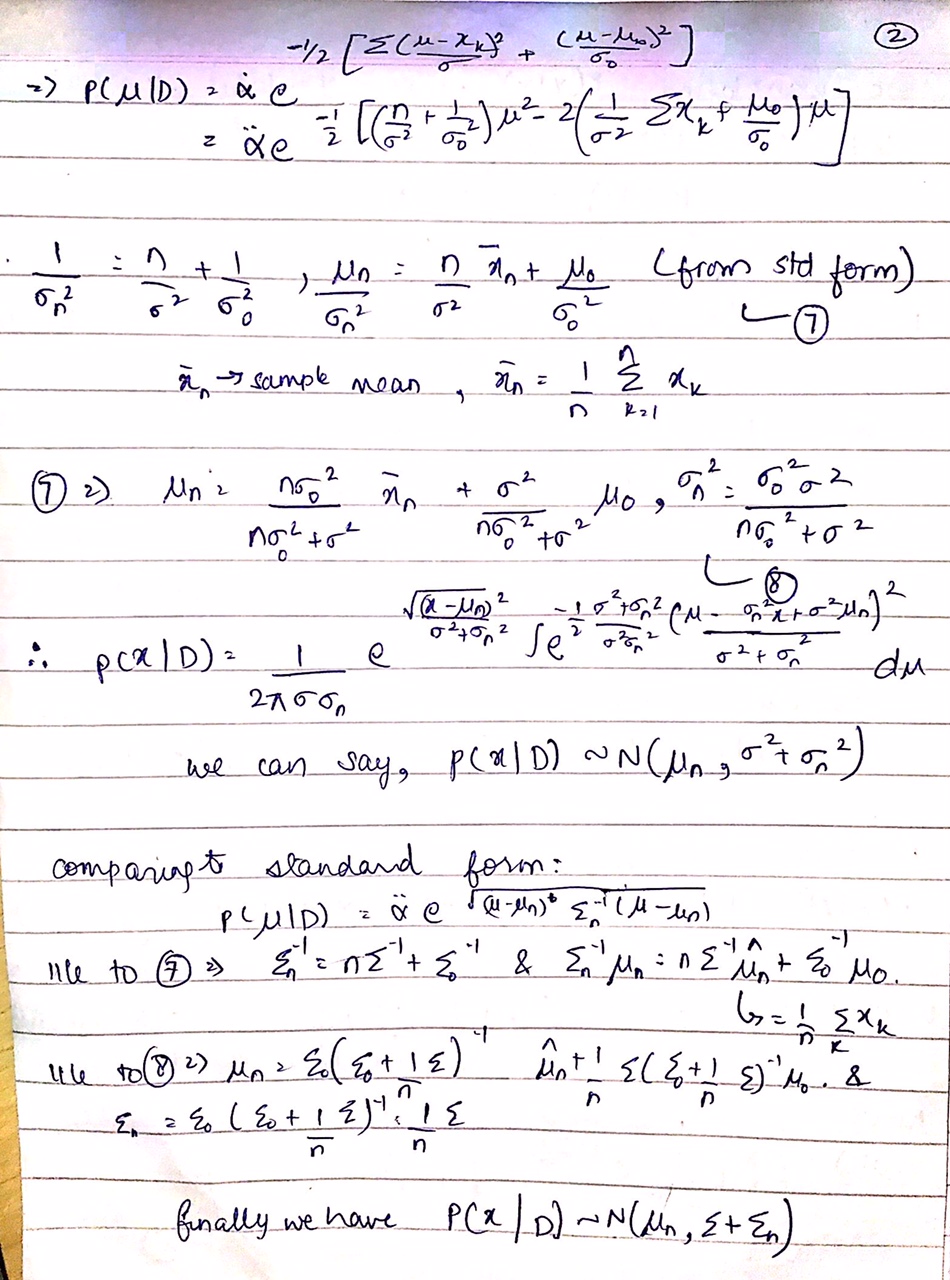 ②
=> P(μ|D) = α̇ e^{-1/2 [Σ(μ-x_k)²/σ + (μ-μ₀)²/σ₀]}
= α̈ e^{-1/2 [(n/σ² + 1/σ₀²) μ² - 2(1/σ² Σx_k + μ₀/σ₀) μ]}
1/σ_n² = n/σ² + 1/σ₀² , μ_n/σ_n² = n/σ² x̄_n + μ₀/σ₀² (from std form)
↳ ⑦
x̄_n → sample mean , x̄_n = 1/n Σ_{k=1}^{n} x_k
⑦ => μ_n = nσ₀²/(nσ₀²+σ²) x̄_n + σ²/(nσ₀²+σ²) μ₀ , σ_n² = σ₀²σ²/(nσ₀²+σ²)
↳ ⑧
∴ p(x|D) = 1/(2πσσ_n) e^{√(x-μ_n)²/(σ²+σ_n²)} ∫e^{-1/2 (σ²+σ_n²)/(σ²σ_n²) (μ - (σ_n²x+σ²μ_n)/(σ²+σ_n²))²} dμ
we can say, P(x|D) ~ N(μ_n , σ²+σ_n²)
comparing t standard form:
P(μ|D) = α̈ e^{√(μ-μ_n)^t Σ_n^{-1}(μ-μ_n)}
llle to ⑦ => Σ_n^{-1} = nΣ^{-1} + Σ₀^{-1} & Σ_n^{-1} μ_n = nΣ^{-1} μ̂_n + Σ₀^{-1} μ₀.
↳ = 1/n Σ_k x_k
llle to ⑧ => μ_n = Σ₀(Σ₀ + 1/n Σ)^{-1} μ̂_n + 1/n Σ(Σ₀ + 1/n Σ)^{-1} μ₀ . &
Σ_n = Σ₀ (Σ₀ + 1/n Σ)^{-1} . 1/n Σ
finally we have P(x|D) ~ N(μ_n, Σ+Σ_n)